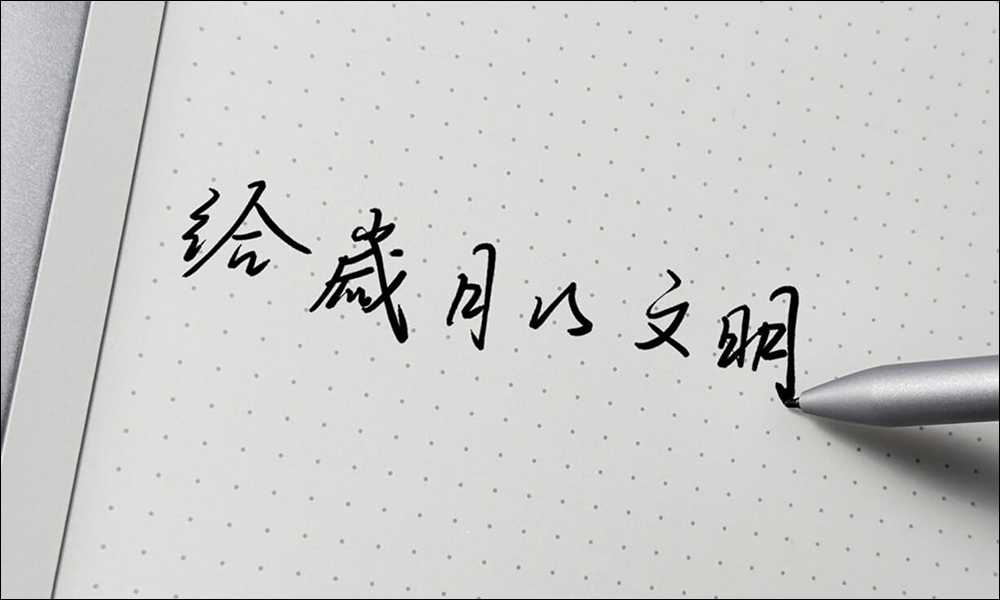 给歲月以文明